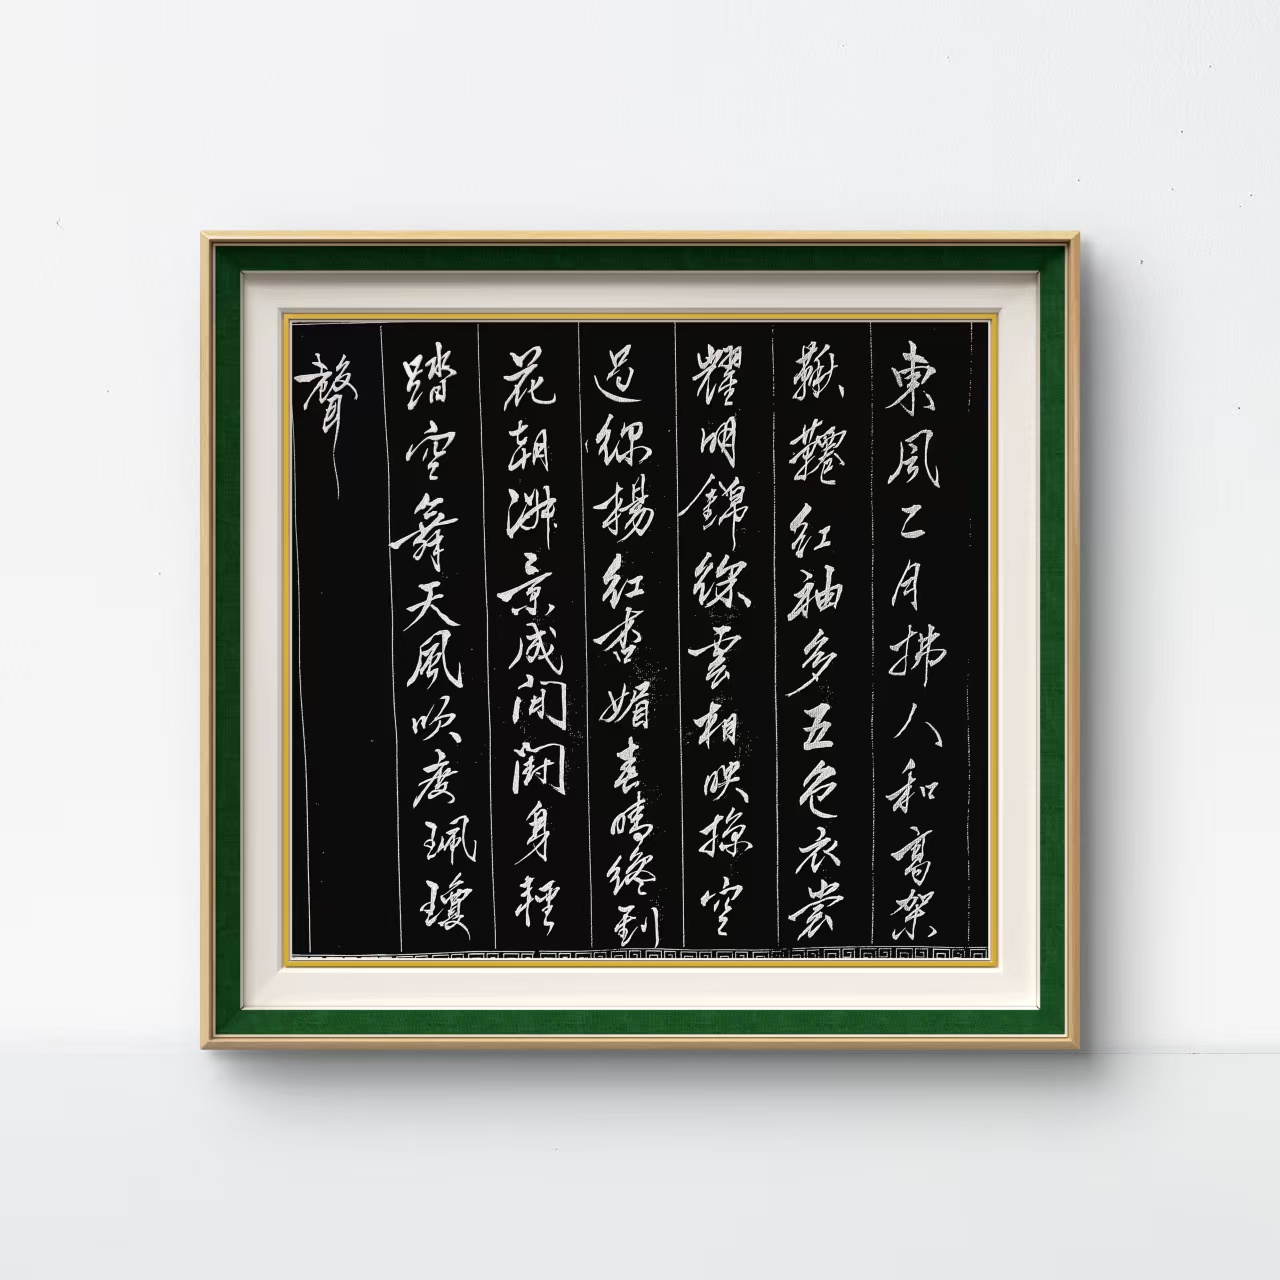 東風二月拂人和高架
鞦韆紅袖多五色衣裳
耀明錦綵雲相映掠空
過綠楊紅杏媚春晴終到
花朝淑景成閒鬭身輕
踏空舞天風吹度珮瓊
聲